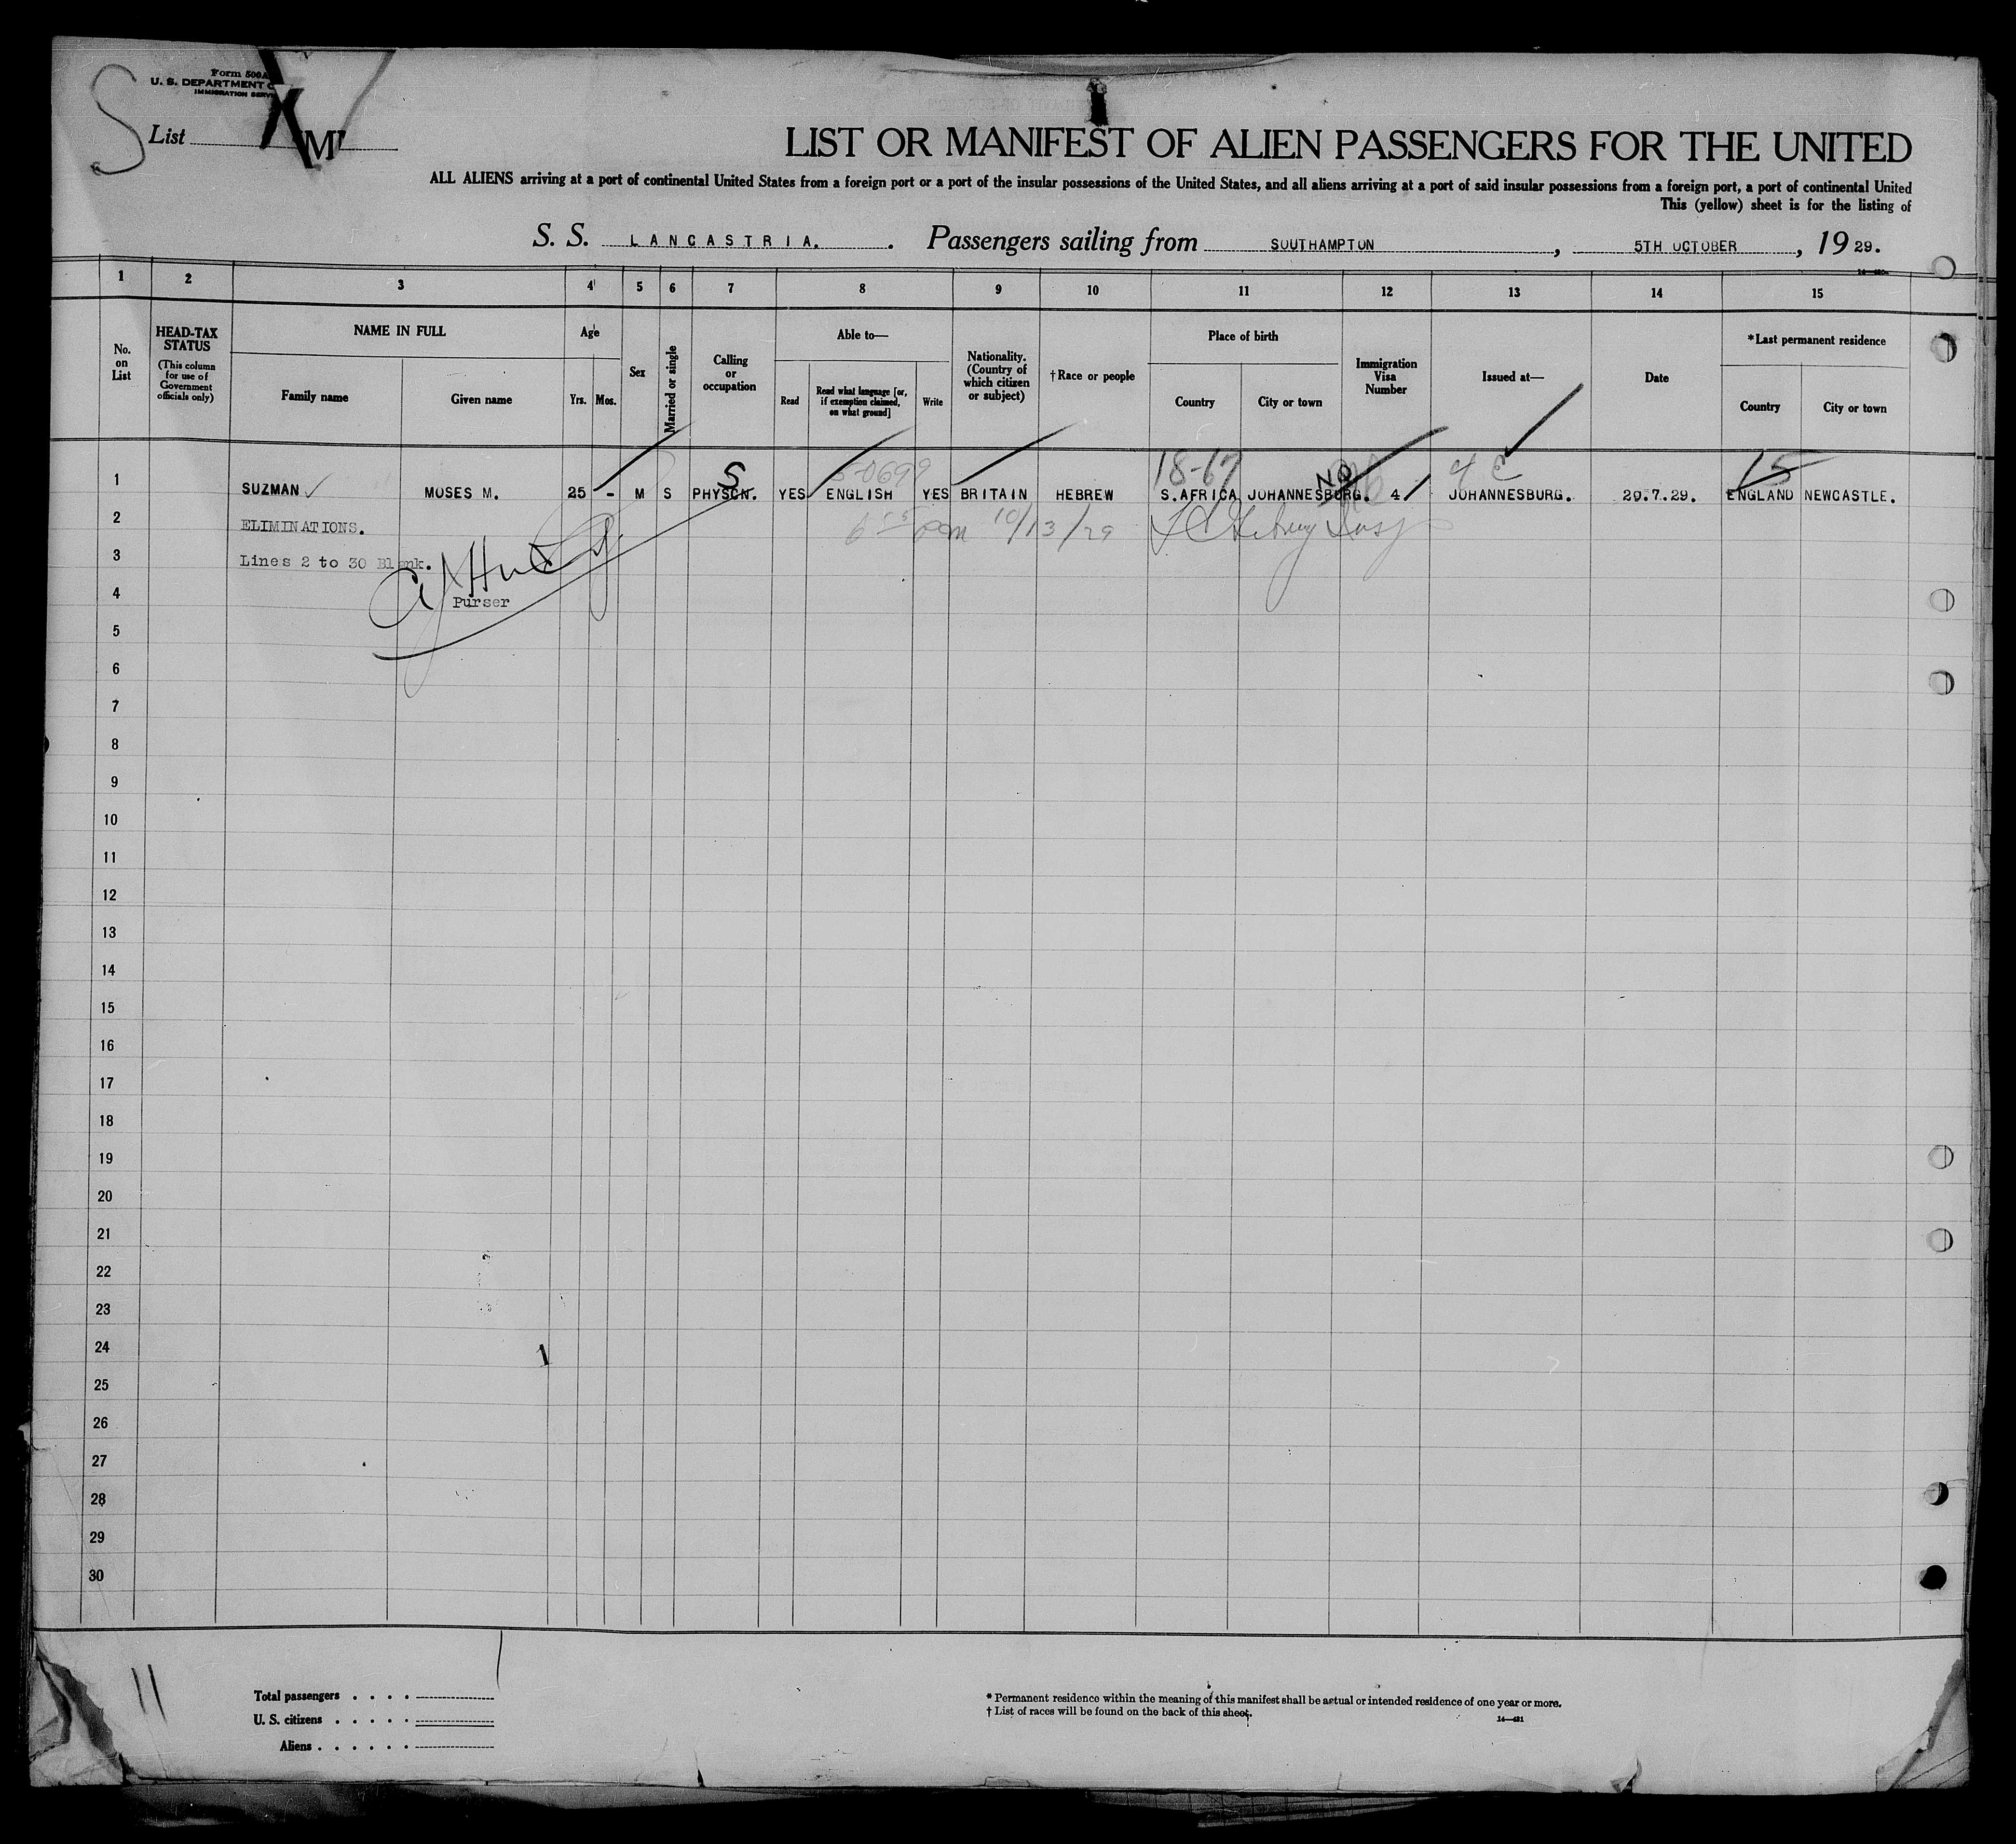 Form 500A
U. S. DEPARTMENT
IMMIGRATION SERV
S
List
LIST OR MANIFEST OF ALIEN PASSENGERS FOR THE UNITED
ALL ALIENS arriving at a port of continental United States from a foreign port or a port of the insular possessions of the United States, and all aliens arriving at a port of said insular possessions from a foreign port, a port of continental United
This (yellow) sheet is for the listing of
S. S. LANCASTRIA. Passengers sailing from SOUTHAMPTON, 5TH OCTOBER, 1929.
1 2 3 4 5 6 7 8 9 10 11 12 13 14 15
No. on List
HEAD-TAX STATUS
(This column for use of Government officials only)
NAME IN FULL
Family name
Given name
Age
Yrs.
Mos.
Sex
Married or single
Calling or occupation
Able to—
Read
Read what language [or, if exemption claimed, on what ground]
Write
Nationality. (Country of which citizen or subject)
†Race or people
Place of birth
Country
City or town
Immigration Visa Number
Issued at—
Date
*Last permanent residence
Country
City or town
S 18-67 NQ 15
1 SUZMAN MOSES M. 25 - M S PHYSCN. YES ENGLISH YES BRITAIN HEBREW S.AFRICA JOHANNESBURG. 4 JOHANNESBURG. 20.7.29. ENGLAND NEWCASTLE.
2 ELIMINATIONS. 10/13/29
3 Lines 2 to 30 Blank.
4 Purser
5
6
7
8
9
10
11
12
13
14
15
16
17
18
19
20
21
22
23
24
25
26
27
28
29
30
11
Total passengers . . . .
U. S. citizens . . . . .
Aliens . . . . . .
* Permanent residence within the meaning of this manifest shall be actual or intended residence of one year or more.
† List of races will be found on the back of this sheet.
14—431